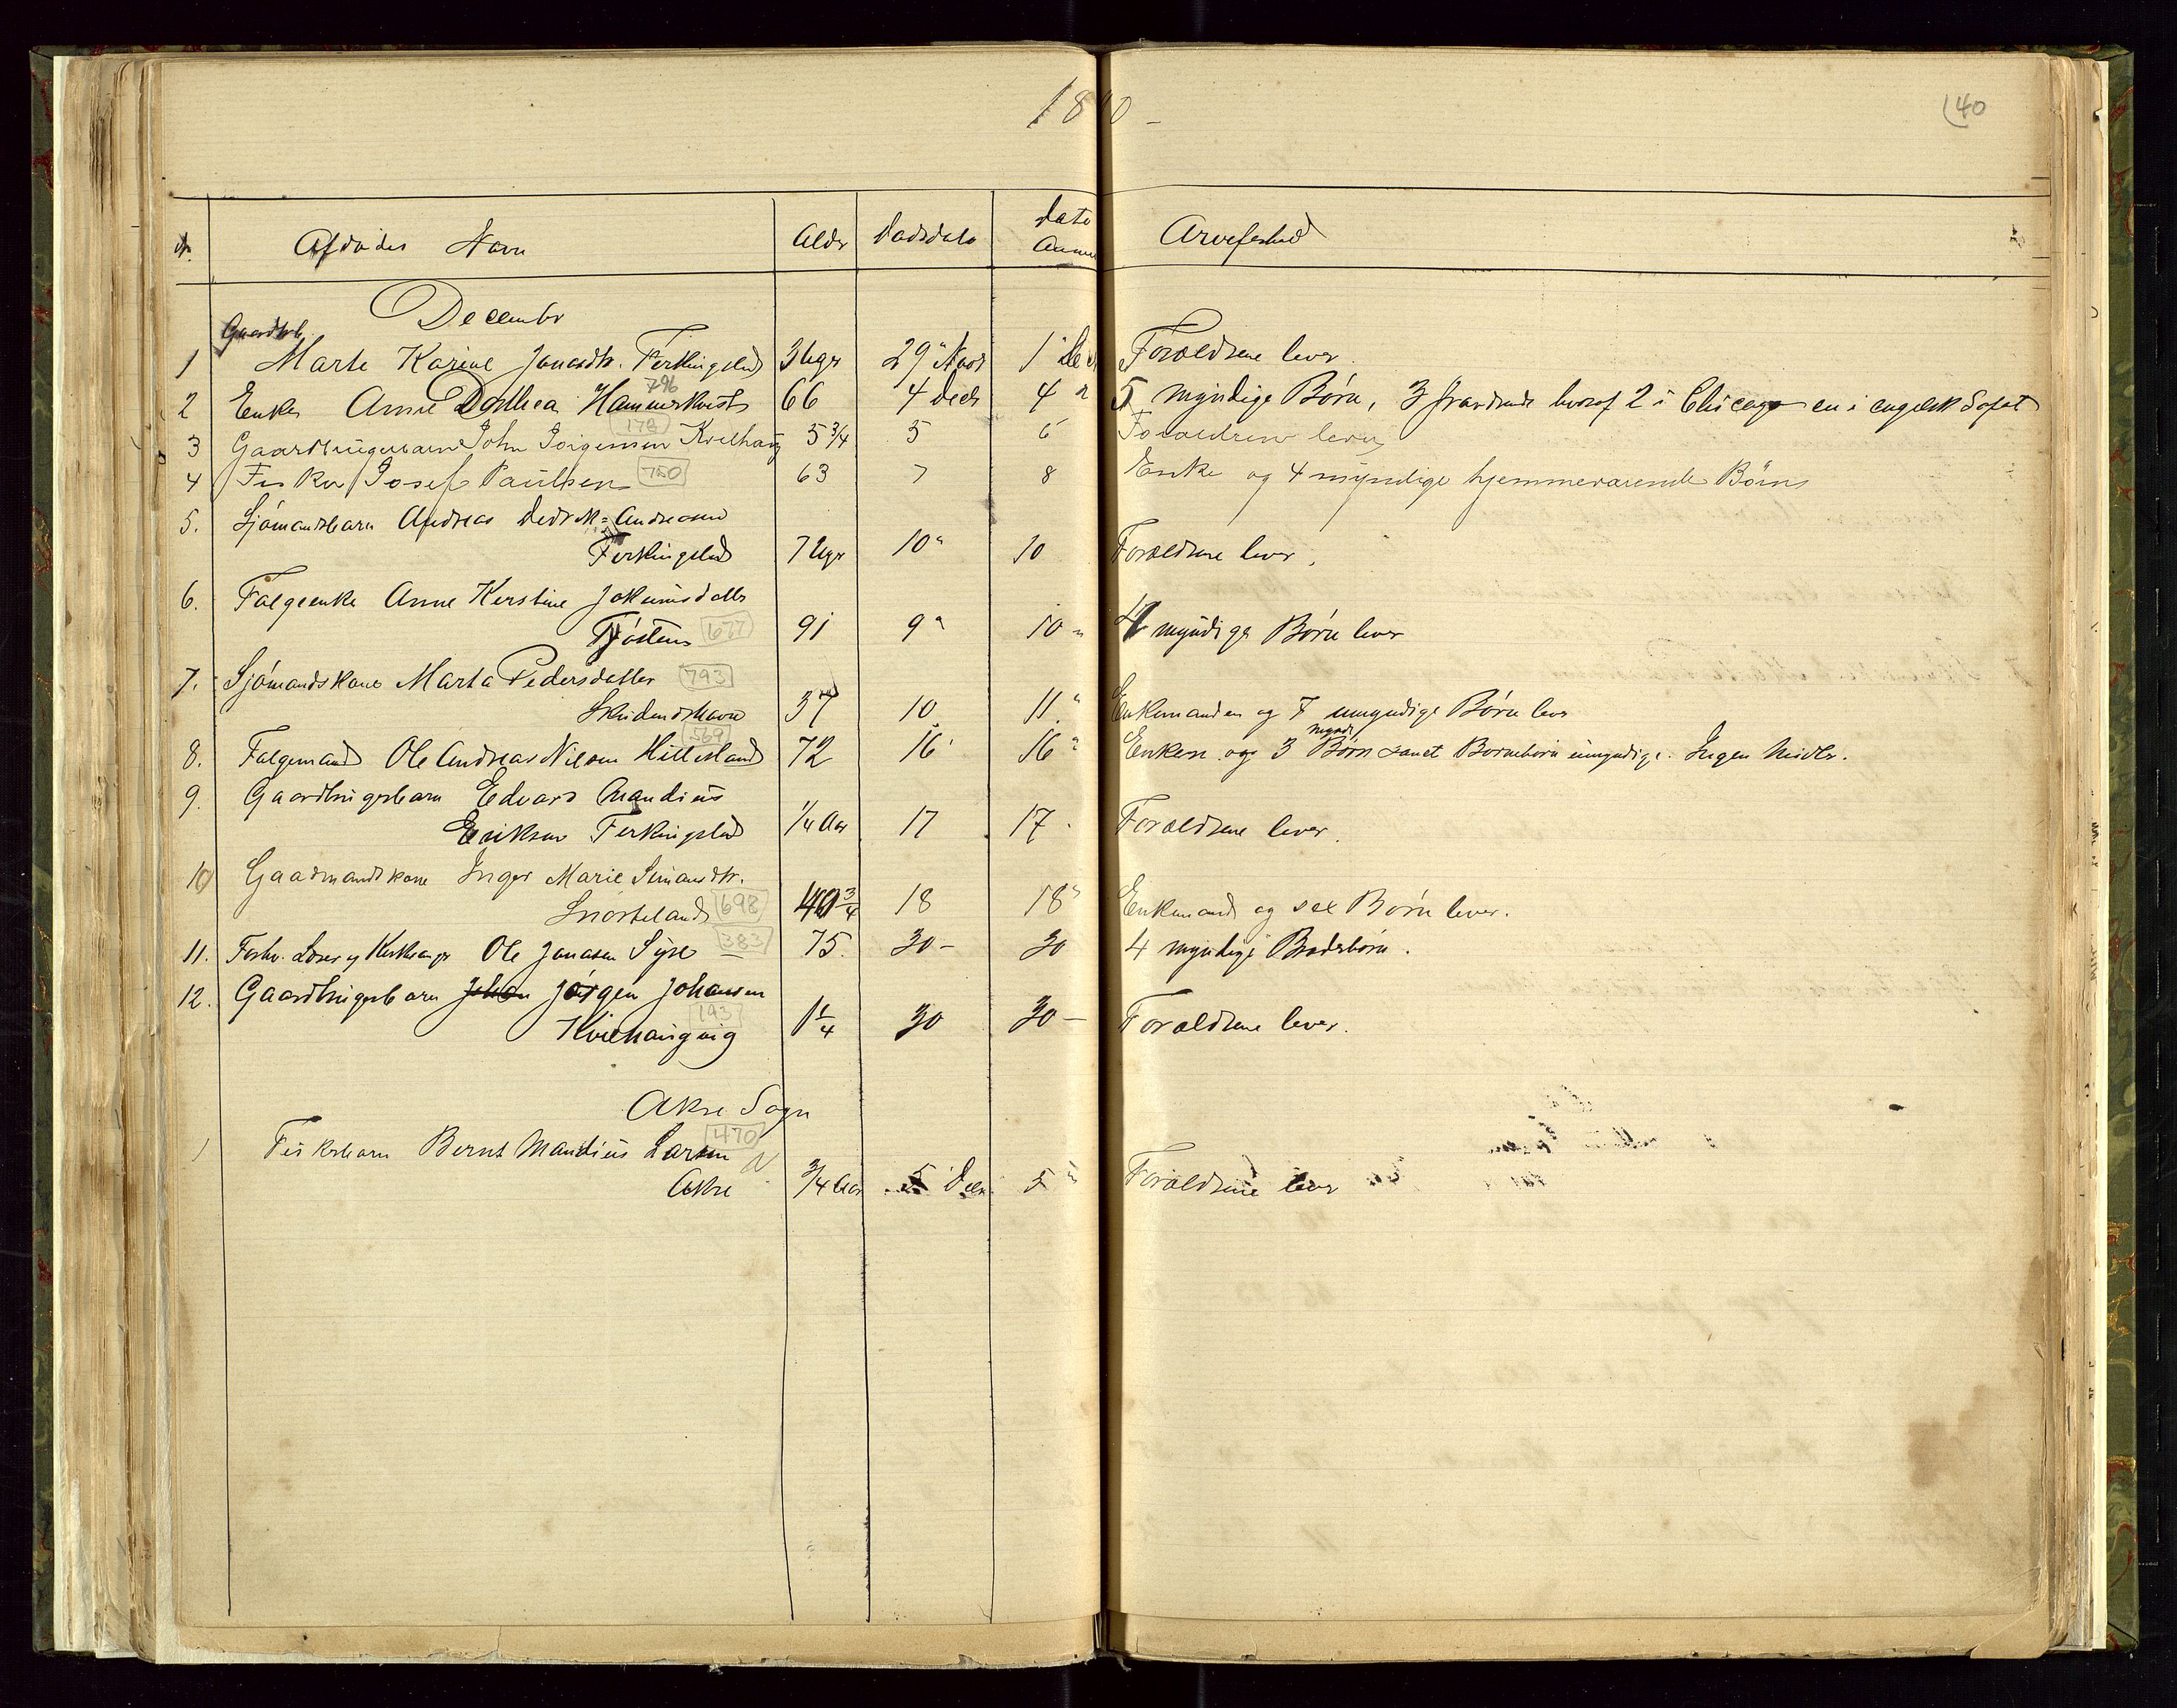 18 0 -
(40
N. Afdødes Navn Alder Dødsdato Dato Anm Arveforhold
December
Gaardbrb.
1 Marte Karine Jonasdtr. Ferkingstad 3 Uger 29" Novr 1" Dec Forældrene lever.
796
2 Enke Anne Dorthea Hammerkvist 66 4 Decb 4 " 5 myndige Børn, 3 fraværende hvoraf 2 i Chicago en i engelsk Søfart
178
3 Gaardbrugerbarn John Jørgensen Kvelhaug 5 3/4 5 6 Forældrene lever
4 Fisker Josef Paulsen 750 63 7 8 Enke og 4 myndige hjemmeværende Børn
5. Sjömandsbarn Andreas Andreasen
Ferkingstad 7 Uger 10" 10 Forældrene lever.
6. Følgeenke Anne Kerstine Jokumsdatter
Tjøsten 677 91 9 " 10 " 4 myndige Børn lever
7. Sjømandskone Marta Pedersdatter 793
Skudeneshavn 37 10 11." Enkemanden og 7 umyndige Børn lever
569 mynd.
8. Følgemand Ole Andreas Nilsen Hillesland 72 16' 16 " Enken og 3 Børn samt Børnebørn umyndige. Ingen Midler.
9. Gaardbrugerbarn Edvard Mandius
Eriksen Ferkingstad 1/4 Aar 17 17. Forældrene lever.
10 Gaardmandskone Inger Marie Simonsdtr.
Snørteland 698 40 3/4 18 18" Enkemand og sex Børn lever.
11. Forhv. Lærer og Kirkesanger Ole Jonasen Syre 383 75. 30 - 30 4 myndige Broderbørn.
12. Gaardbrugerbarn Johan Jørgen Johansen
193
Kvelhaugvig 1 1/4 30 30 - Forældrene lever.
Akre Sogn
470
1 Fiskerbarn Bernt Mandius Larsen
Akre 3/4 Aar 5 Decbr 5 " Forældrene lever